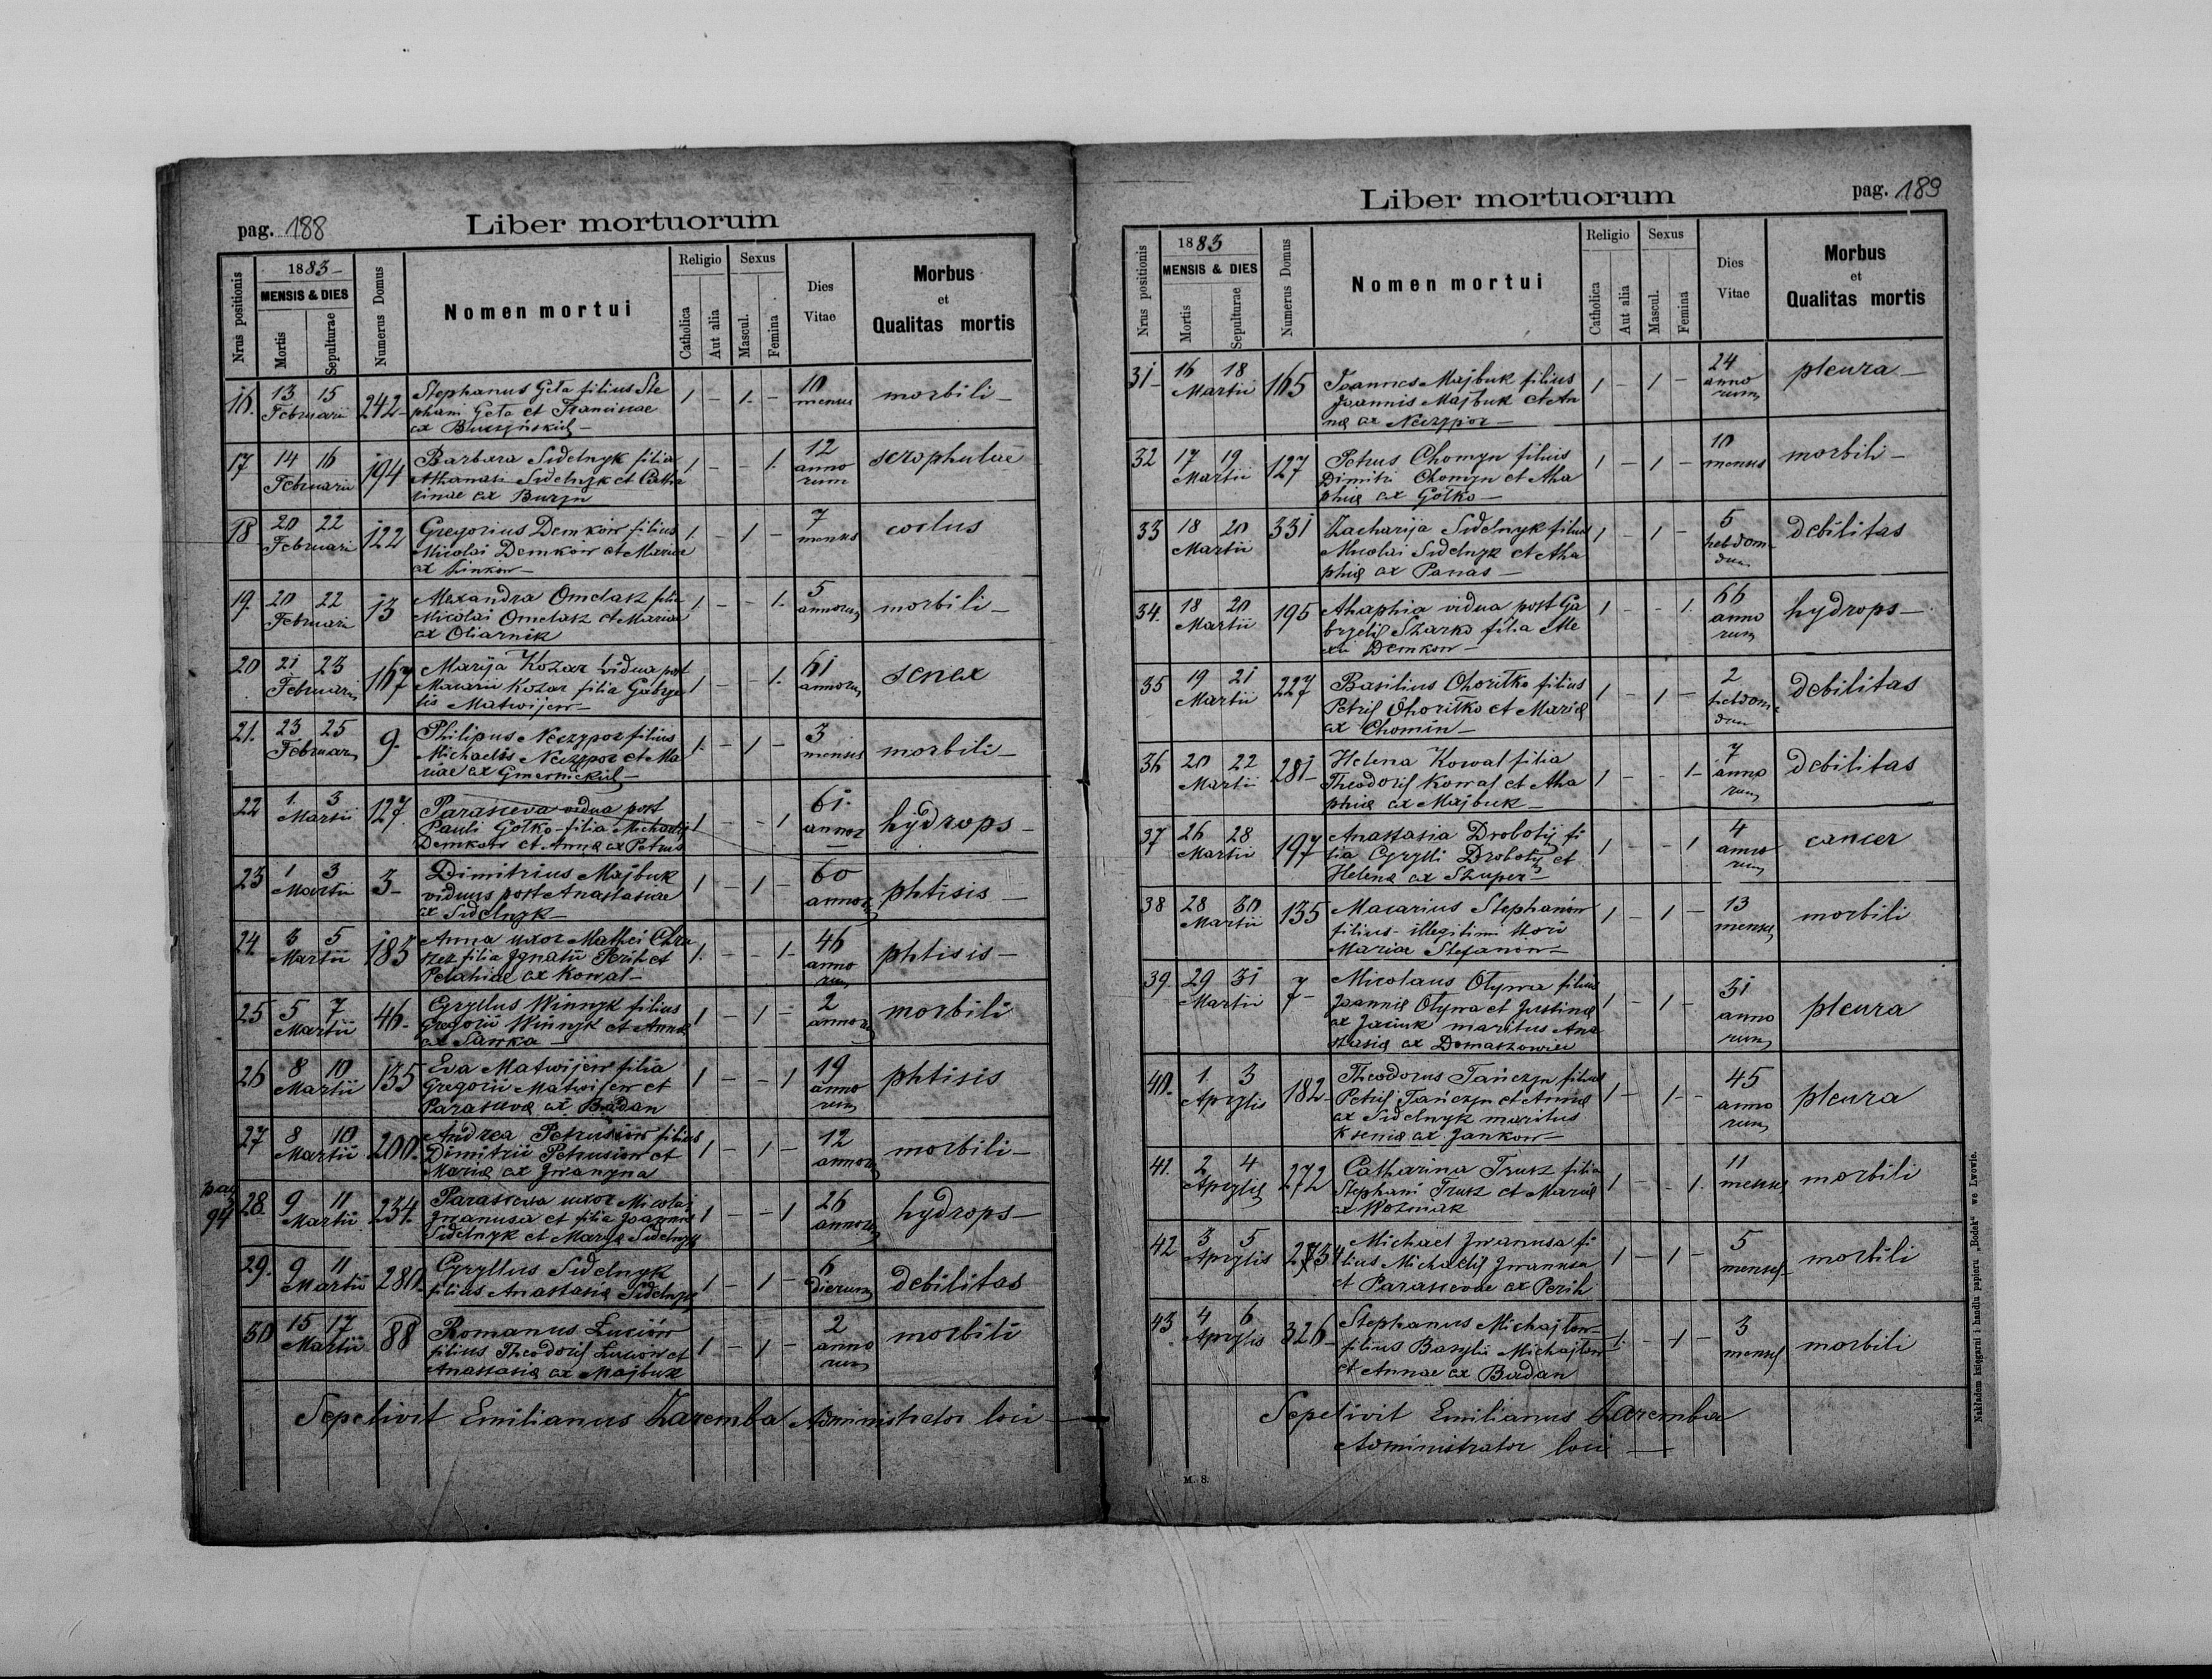 pag. 188
Liber mortuorum
Nrus positionis
1883
MENSIS & DIES
Mortis
Sepulturae
Numerus Domus
Nomen mortui
Religio
Catholica
Aut alia
Sexus
Mascul.
Femina
Dies Vitae
Morbus et Qualitas mortis
16. 13 15 Februarii 242 Stephanus Geta filius Ste 1 – 1. – 10 menses morbili –
phani Geta et Franciscae
ex
17 14 16 Februarii 194 Barbara Sidelnyk filia 1 – – 1. 12 anno rum scrophulae
Athanasi Sidelnyk et Catha
rinae ex Buryn
18 20 22 Februari 122 Gregorius Demkow filius 1. – 1 – 7 menses
Nicolai Demkow et Mariae
ex
19. 20 22 Februari 13 Alexandra Omelasz filia 1. – – 1. 5 annorum morbili –
Nicolai Omelasz et Mariae
ex Oliarnik
20 21 23 Februarii 167 Marija Kozar vidua post 1 – – 1. 61 annorum senex
Macarii Kozar filia Gabrye
lis Matwijew –
21. 23 25 Februar 9. Philipus Neczypor filius 1. – 1 – 3 menses morbili –
Michaelis Neczypor et Ma
riae ex
22 1. 3 Martii 127. Parasceva vidua post 1 – – 1 61. annor hydrops –
Pauli Gotko filia Michaelis
Demkow et Annae ex Petrus
23 1 3 Martii 3 – Dimitrius Majbuk 1 – 1 – 60 annor phtisis –
viduus post Anastasiae
ex Sidelnyk –
24. 3 5 Martii 183 Anna uxor Mathei Chra 1. – – 1. 46 anno rum phtisis –
filia Ignatii Perih et
Pelahiae ex Kowal –
25 5 7 Martii 46. Cyryllus Winnyk filius 1 – 1 – 2 annor morbili
Gregorii Winnyk et Annae
ex Sawka –
26 8 10 Martii 135 Eva Matwijew filia 1 – – 1 19 anno rum phtisis
Gregorii Matwijew et
Parascevae ex Badan
27 8 10 Martii 200. Andrea Petrusiow filius 1 – 1 – 12 annor morbili –
Dimitrii Petrusiow et
Mariae ex Iwanyna
pag 94
28. 9 11 Martii 234. Parasceva uxor Nicolai 1 – – 1 26 annor hydrops –
Iwanusa et filia Joannis
Sidelnyk et Marye Sidelnyk
29. 9 11 Martii 280. Cyryllus Sidelnyk 1 – 1 – 6 dierum debilitas
filius Anastasiae Sidelnyk
30 15 17 Martii 88 Romanus Luciow 1 – 1 – 2 anno rum morbili
filius Theodori Luciow et
Anastasiae ex Majbuk
Sepelivit Emilianus Zaremba Administrator loci –
Liber mortuorum
pag. 189
Nrus positionis
1883
MENSIS & DIES
Mortis
Sepulturae
Numerus Domus
Nomen mortui
Religio
Catholica
Aut alia
Sexus
Mascul.
Femina
Dies Vitae
Morbus et Qualitas mortis
31 – 16 18 Martii 165 Joannes Majbuk filius 1 – 1 – 24 anno rum pleura –
Joannis Majbuk et An
na ex Neczypor –
32 17 19 Martii 127 Petrus Chomyn filius 1 – 1 – 10 menses morbili –
Dimitri Chomyn et Aha
phie ex Gotko –
33 18 20 Martii 331 Zacharija Sidelnyk filius 1 – 1 – 5 hebdom dae debilitas
Nicolai Sidelnyk et Aha
phie ex Panas –
34. 18 20 Martii 195 Ahaphia vidua post Ga 1 – – 1. 66 anno rum hydrops –
bryelis Szarko filia Ale
xii Demkow –
35 19 21 Martii 227 Basilius Ohoritko filius 1 – 1 – 2 hebdom dae debilitas
Petri Ohoritko et Marie
ex Chomin –
36 20 22 Martii 281 – Helena Kowal filia 1 – – 1 – 7 anno rum debilitas
Theodori Kowal et Aha
phie ex Majbuk –
37 26 28 Martii 197 Anastasia Drobotij fi 1 – – 1 4 anno rum cancer
lia Cyrylli Drobotij et
Helene ex Szuper –
38 28 30 Martii 135 Macarius Stephanow 1 – 1 – 13 menses morbili
filius illegitimi tori
Mariae Stefanow –
39. 29 31 Martii 7 – Nicolaus Olywa filius 1 – 1 – 31 anno rum pleura
Joannis Olywa et Justinae
ex Jaciuk maritus Ana
stasie ex Domaszowicz
40. 1. 3 Aprylis 182 – Theodorus Tańczyn filius 1 – 1 – 45 anno rum pleura
Petri Tańczyn et Annae
ex Sidelnyk maritus
Ksenie ex Jankow –
41. 2 4 Aprylis 272 Catharina Trusz filia 1 – – 1. 11 menses morbili
Stephani Trusz et Marie
ex Wozniak
42 3 5 Aprylis 234 Michael Iwanusa fi 1 – 1 – 5 menses – morbili
lius Michaelis Iwanusa
et Parascevae ex Perih
43. 4 6 Aprylis 326 – Stephanus Michajlow – 1. – 1 – 3 menses morbili
filius Basylii Michajlow
et Annae ex Badan
Sepelivit Emilianus Zaremba
Administrator loci –
M. 8.
Nakładem księgarni i handlu papieru „Bodek" we Lwowie.